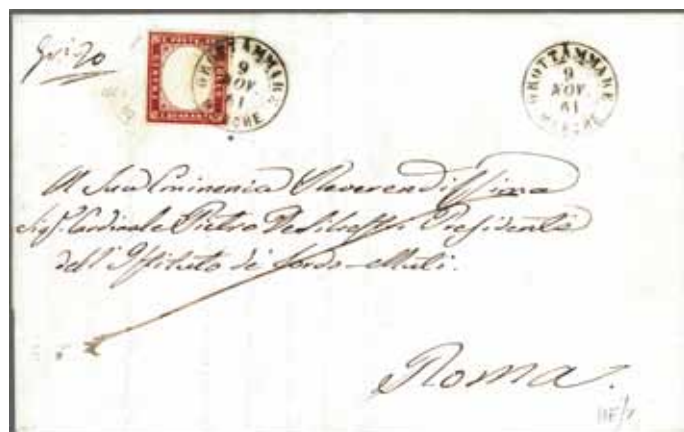 GROTTAMMARE
9
NOV.
61
MARCHE
GROTTAMMARE
9
NOV.
61
MARCHE
A Sua Eminenza Reverendissima
Sigr. Cardinale Pietro De Silvestri Presidente
dell'Istituto de' Sordo-Muti.
Roma.